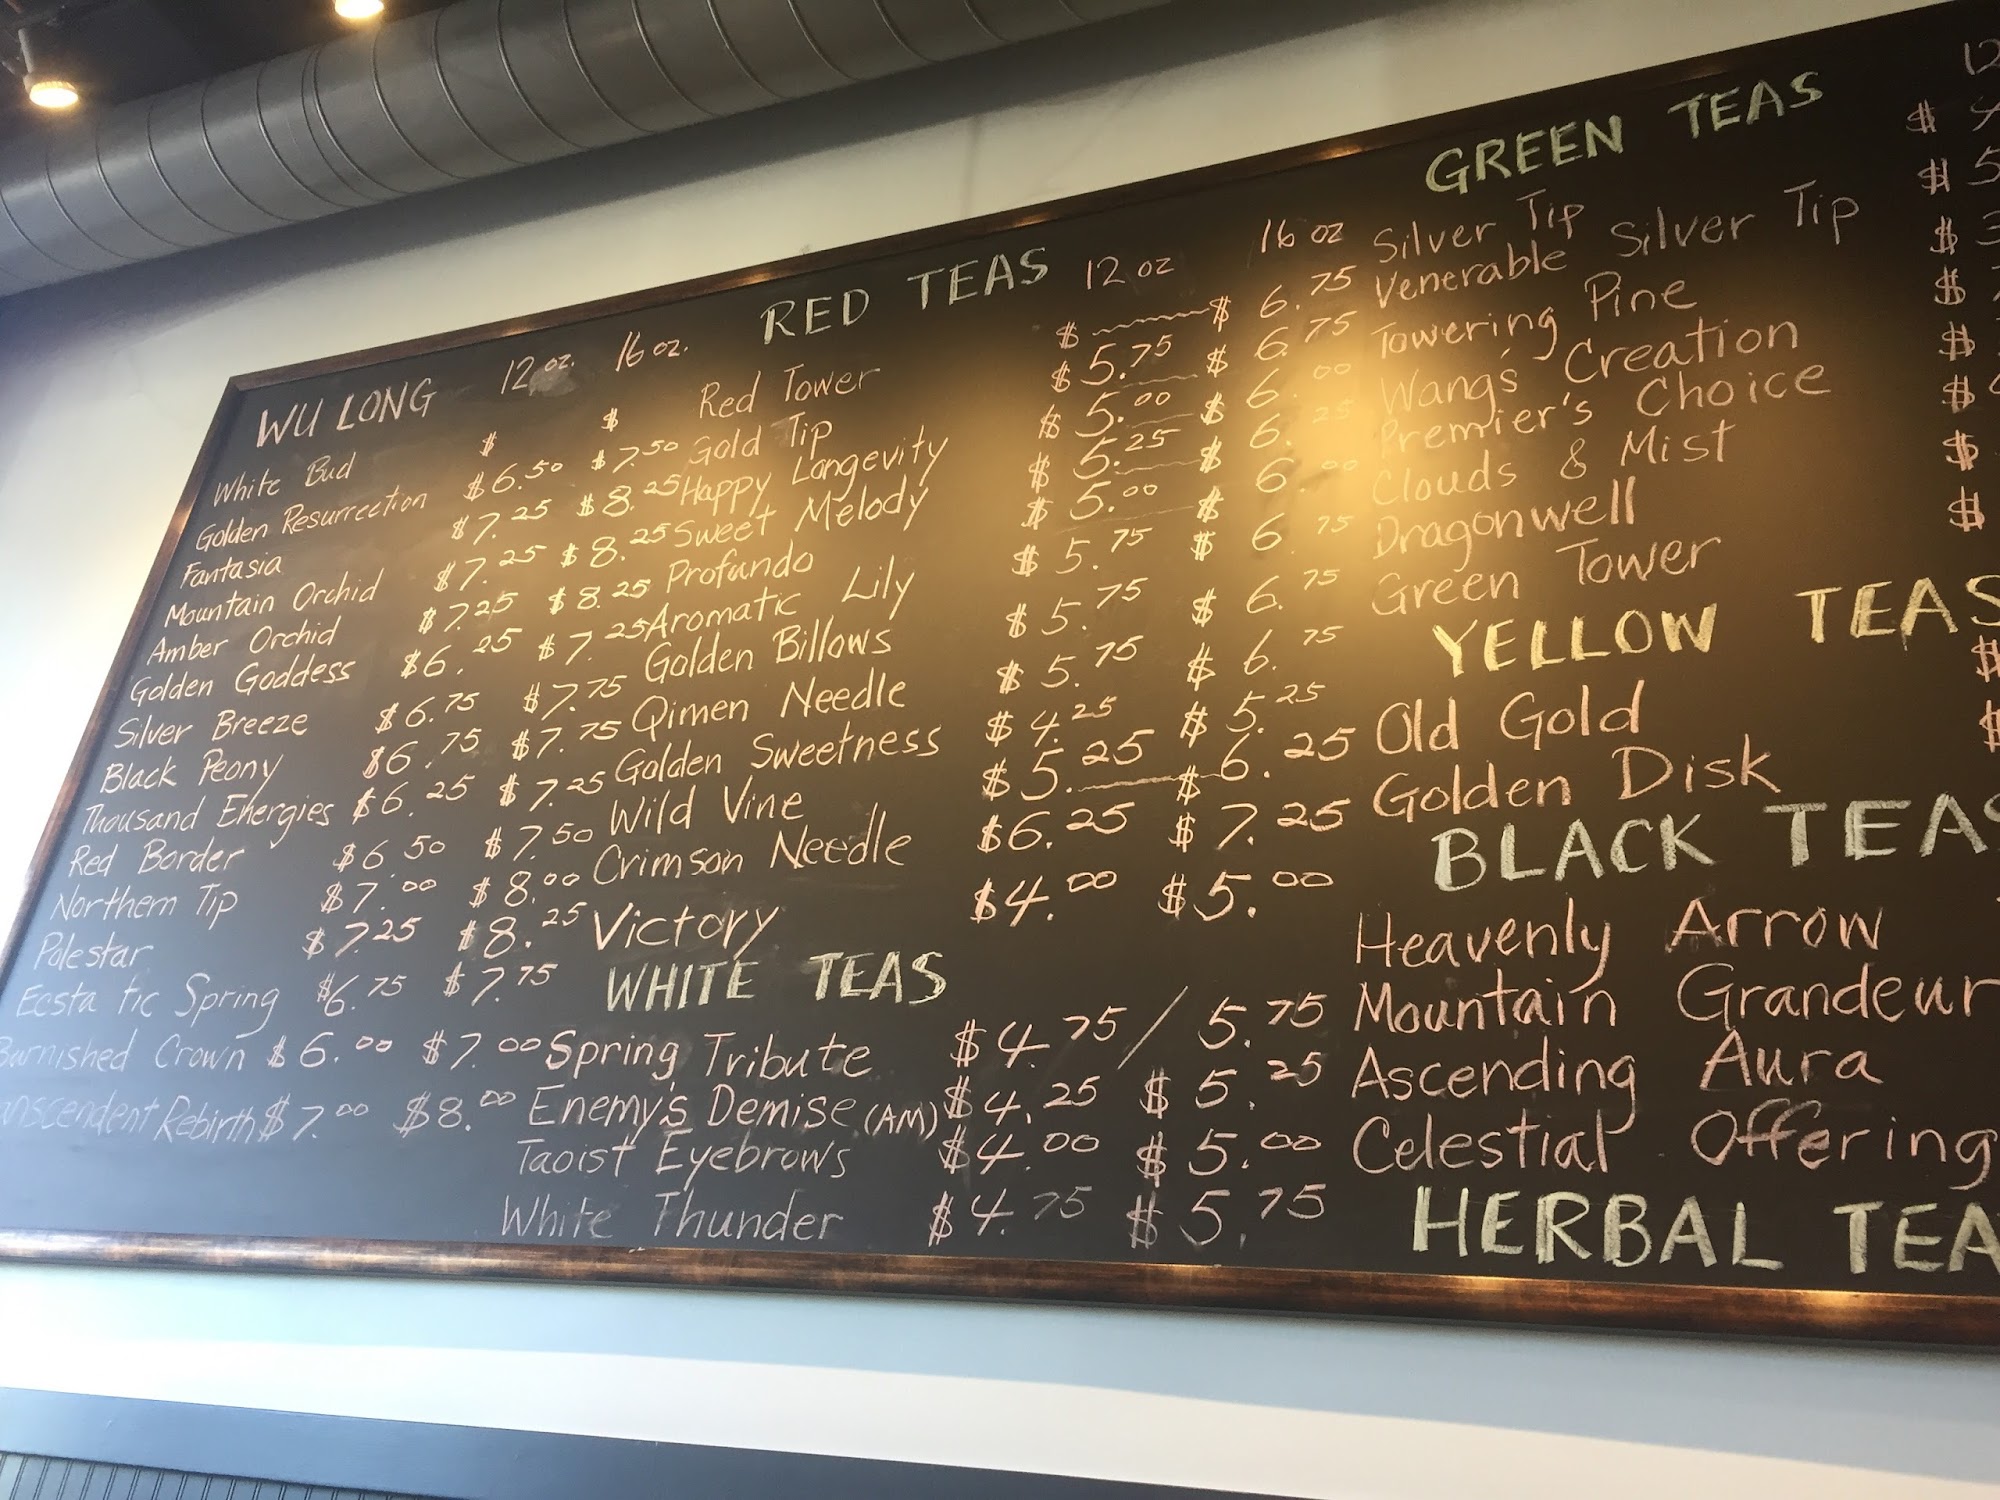 WU LONG 12 oz. 16 oz.
White Bud $ $
Golden Resurrection $6.50 $7.50
Fantasia $7.25 $8.25
Mountain Orchid $7.25 $8.25
Amber Orchid $7.25 $8.25
Golden Goddess $6.25 $7.25
Silver Breeze $6.75 $7.75
Black Peony $6.75 $7.75
Thousand Energies $6.25 $7.25
Red Border $6.50 $7.50
Northern Tip $7.00 $8.00
Polestar $7.25 $8.25
Ecstatic Spring $6.75 $7.75
Burnished Crown $6.00 $7.00
Rebirth $7.00 $8.00
RED TEAS 12 oz 16 oz
Red Tower $ $6.75
Gold Tip $5.75 $6.75
Happy Longevity $5.00 $6.00
Sweet Melody $5.25 $6.25
Profundo $5.00 $6.00
Aromatic Lily $5.75 $6.75
Golden Billows $5.75 $6.75
Qimen Needle $5.75 $6.75
Golden Sweetness $4.25 $5.25
Wild Vine $5.25 $6.25
Crimson Needle $6.25 $7.25
Victory $4.00 $5.00
WHITE TEAS
Spring Tribute $4.75 / 5.75
Enemy's Demise (AM) $4.25 $5.25
Taoist Eyebrows $4.00 $5.00
White Thunder $4.75 $5.75
GREEN TEAS 12
Silver Tip $
Venerable Silver Tip $
Towering Pine $
Wang's Creation $
Premier's Choice $
Clouds & Mist $
Dragonwell $
Green Tower $
YELLOW TEAS
Old Gold $
Golden Disk $
BLACK TEAS
Heavenly Arrow
Mountain Grandeur
Ascending Aura
Celestial Offering
HERBAL TEA